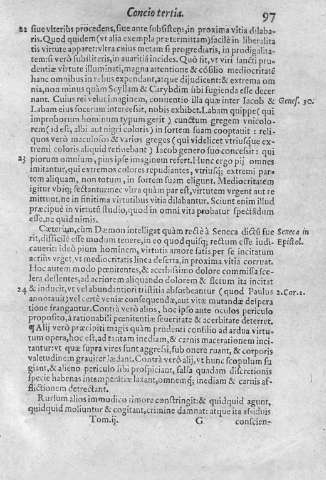 Concio tertia. 97
22 siue viteriùs procedens, siue ante subsistens, in proxima vitia dilaba-
ris. Quod quidem (vt alia exempla prætermittam) facilè in liberalita
tis virtute apparet: vltra cuius metam si progrediaris, in prodigalita-
tem: si verò substiteris, in auaritiã incides. Quò fit, vt viri sancti pru-
dentiæ virtute illuminati, magna attentione & cõsilio mediocritatẽ
hanc omnibus in rebus expendant, atque dijudicent: & extrema om
nia, non minus quàm Scyllam & Carybdim sibi fugienda esse decer
nant. Cuius rei velut imaginem, conuentio illa quæ inter Iacob & Genes. 30.
Labam eius socerum intercessit, nobis exhibet. Labam quippe (qui
improborum hominum typum gerit) cunctum gregem vnicolo-
rem (id est, albi aut nigri coloris) in fortem suam cooptauit: reli-
quos verò maculosos & varios greges (qui videlicet vtriusque ex-
tremi coloris aliquid retinebant) Iacob genero suo concessit: qui
23 piorum omnium, pius ipse imaginem refert. Hunc ergo pij omnes
imitantur, qui extremos colores repudiantes, vtriusq; extremi par-
tem aliquam, non totum, in fortem suam eligunt. Mediocritatem
igitur vbiq; sectantur: nec vltra quàm par est, virtutem vrgent aut re
mittunt, ne in finitima virtutibus vitia dilabantur. Sciunt enim illud
præcipuè in virtutũ studio, quod in omni vita probatur spectãdum
esse, ne quid nimis.
Cæterùm, cùm Dæmon intelligat quàm rectè à Seneca dictũ sue Seneca in
rit, difficile esse modum tenere, in eo quod quisq; rectum esse iudi- Epistol.
cauerit: ideò pium hominem, virtutis amore satis per se incitatum
acriùs vrget, vt mediocritatis linea deserta, in proxima vitia corruat.
Hoc autem modo pœnitentes, & acerbissimo dolore commissa sce-
lera deflentes, ad acriorem aliquando dolorem & fletum ita incitat
24 & inducit, vt vel abundantiori tristitia absorbeantur (quod Paulus 2. Cor. 2.
annotauit) vel certè veniæ consequendæ, aut vitæ mutandæ despera
tione frangantur. Contrà verò alios, hoc ipso ante oculos periculo
proposito, à rationabili pœnitentiæ seueritate & acerbitate deterret.
¶ Alij verò præcipiti magis quàm prudenti consilio ad ardua virtu-
tum opera, hoc est, ad tantam inediam, & carnis macerationem inci-
tantur: vt quæ supra vires sunt aggressi, sub onere ruant, & corporis
valetudinem grauiter lædant. Contrà verò alij, vt hunc scopulum fu
giant, & alieno periculo sibi prospiciant, falsa quadam discretionis
specie habenas intemperãtiæ laxant, omnemq; inediam & carnis af-
flictionem detrectant.
Rursum alios immodico timore constringit: & quidquid agunt,
quidquid moliuntur & cogitant, crimine damnat: atque ita assiduis
Tom. ij. G conscien-